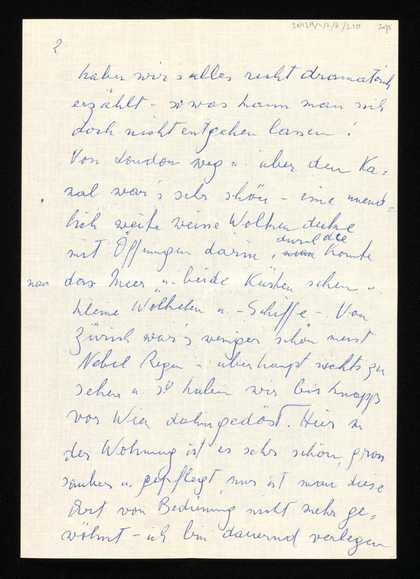 2
haben wir's alles recht dramatisch
erzählt - so was kann man sich
doch nicht entgehen lassen!
Von London weg u. über den Ka-
nal war's sehr schön - eine unend-
lich weite weisse Wolken decke
mit Öffnungen darin, durch die konnte
man das Meer u. beide Küsten sehen u.
kleine Wölkchen u. Schiffe - Von
Zürich war's weniger schön meist
Nebel Regen u. überhaupt nichts zu
sehen u. so haben wir bis knapp
vor Wien dahingedöst. Hier in
der Wohnung ist es sehr schön, gross
sauber u. gepflegt, nur ist man diese
Art von Bedienung nicht mehr ge-
wöhnt - ich bin dauernd verlegen